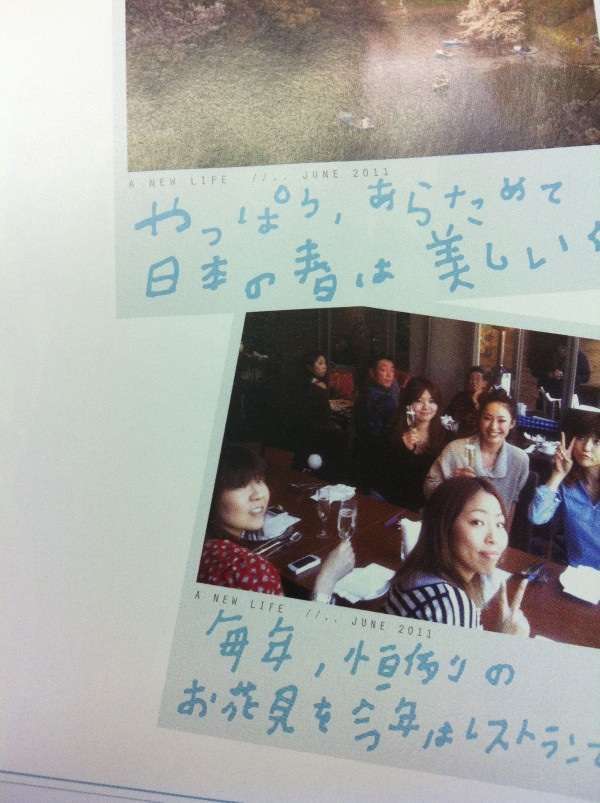 A NEW LIFE //.. JUNE 2011
やっぱり、あらためて
日本の春は美しい
A NEW LIFE //.. JUNE 2011
毎年、恒例の
お花見を今年はレストランで